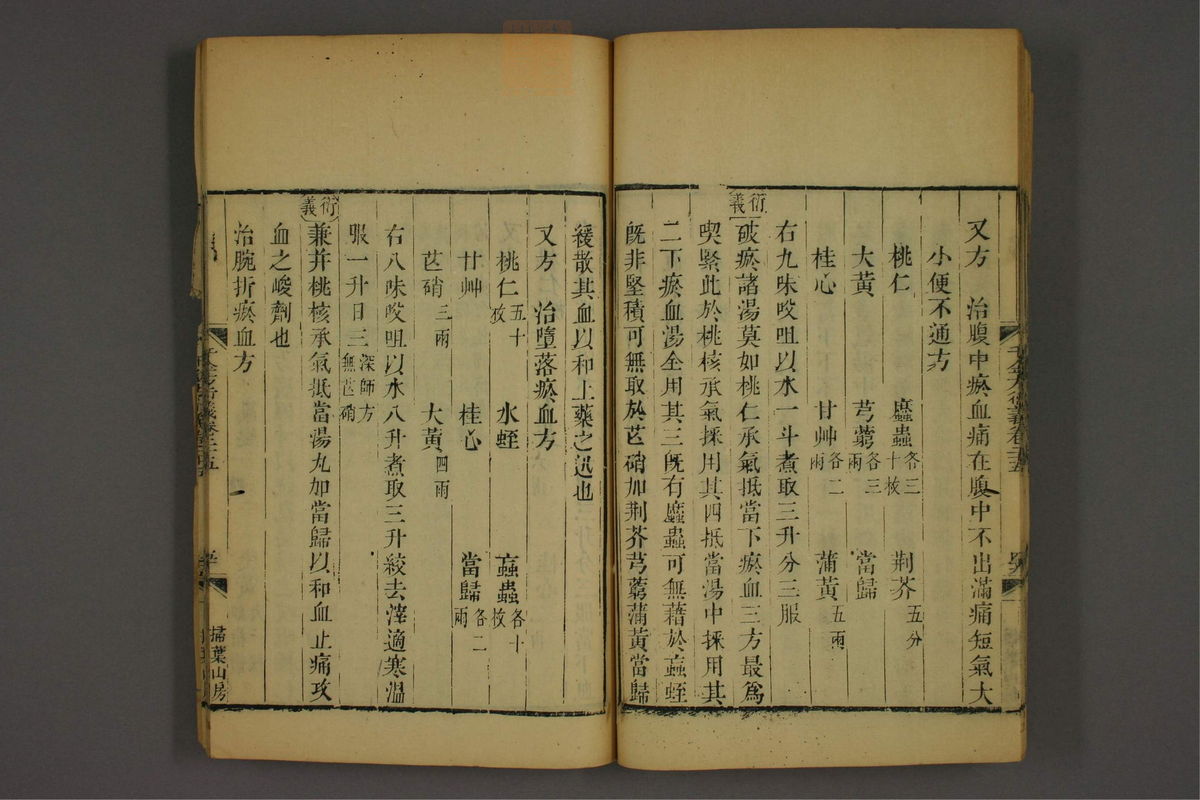 又方　治腹中瘀血痛在腹中不出滿痛短氣大
小便不通方
桃仁　䗪蟲各三十枚　荆芥五分
大黃　芎藭各三兩　當歸
桂心　甘艸各二兩　蒲黃五兩
右九味㕮咀以水一斗煮取三升分三服
衍義　破瘀諸湯莫如桃仁承氣抵當下瘀血三方最爲
喫緊此於桃核承氣採用其四抵當湯中採用其
二下瘀血湯全用其三既有䗪蟲可無藉於蝱蛭
既非堅積可無取於芒硝加荆芥芎藭蒲黃當歸
緩散其血以和上藥之迅也
又方　治墮落瘀血方
桃仁五十枚　水蛭　蝱蟲各十枚
甘艸　桂心　當歸各二兩
芒硝三兩　大黃四兩
右八味㕮咀以水八升煮取三升絞去滓適寒溫
服一升日三深師方無芒硝
衍義　兼幷桃核承氣抵當湯丸加當歸以和血止痛攻
血之峻劑也
治腕折瘀血方
千金方衍義卷二十五
掃葉山房